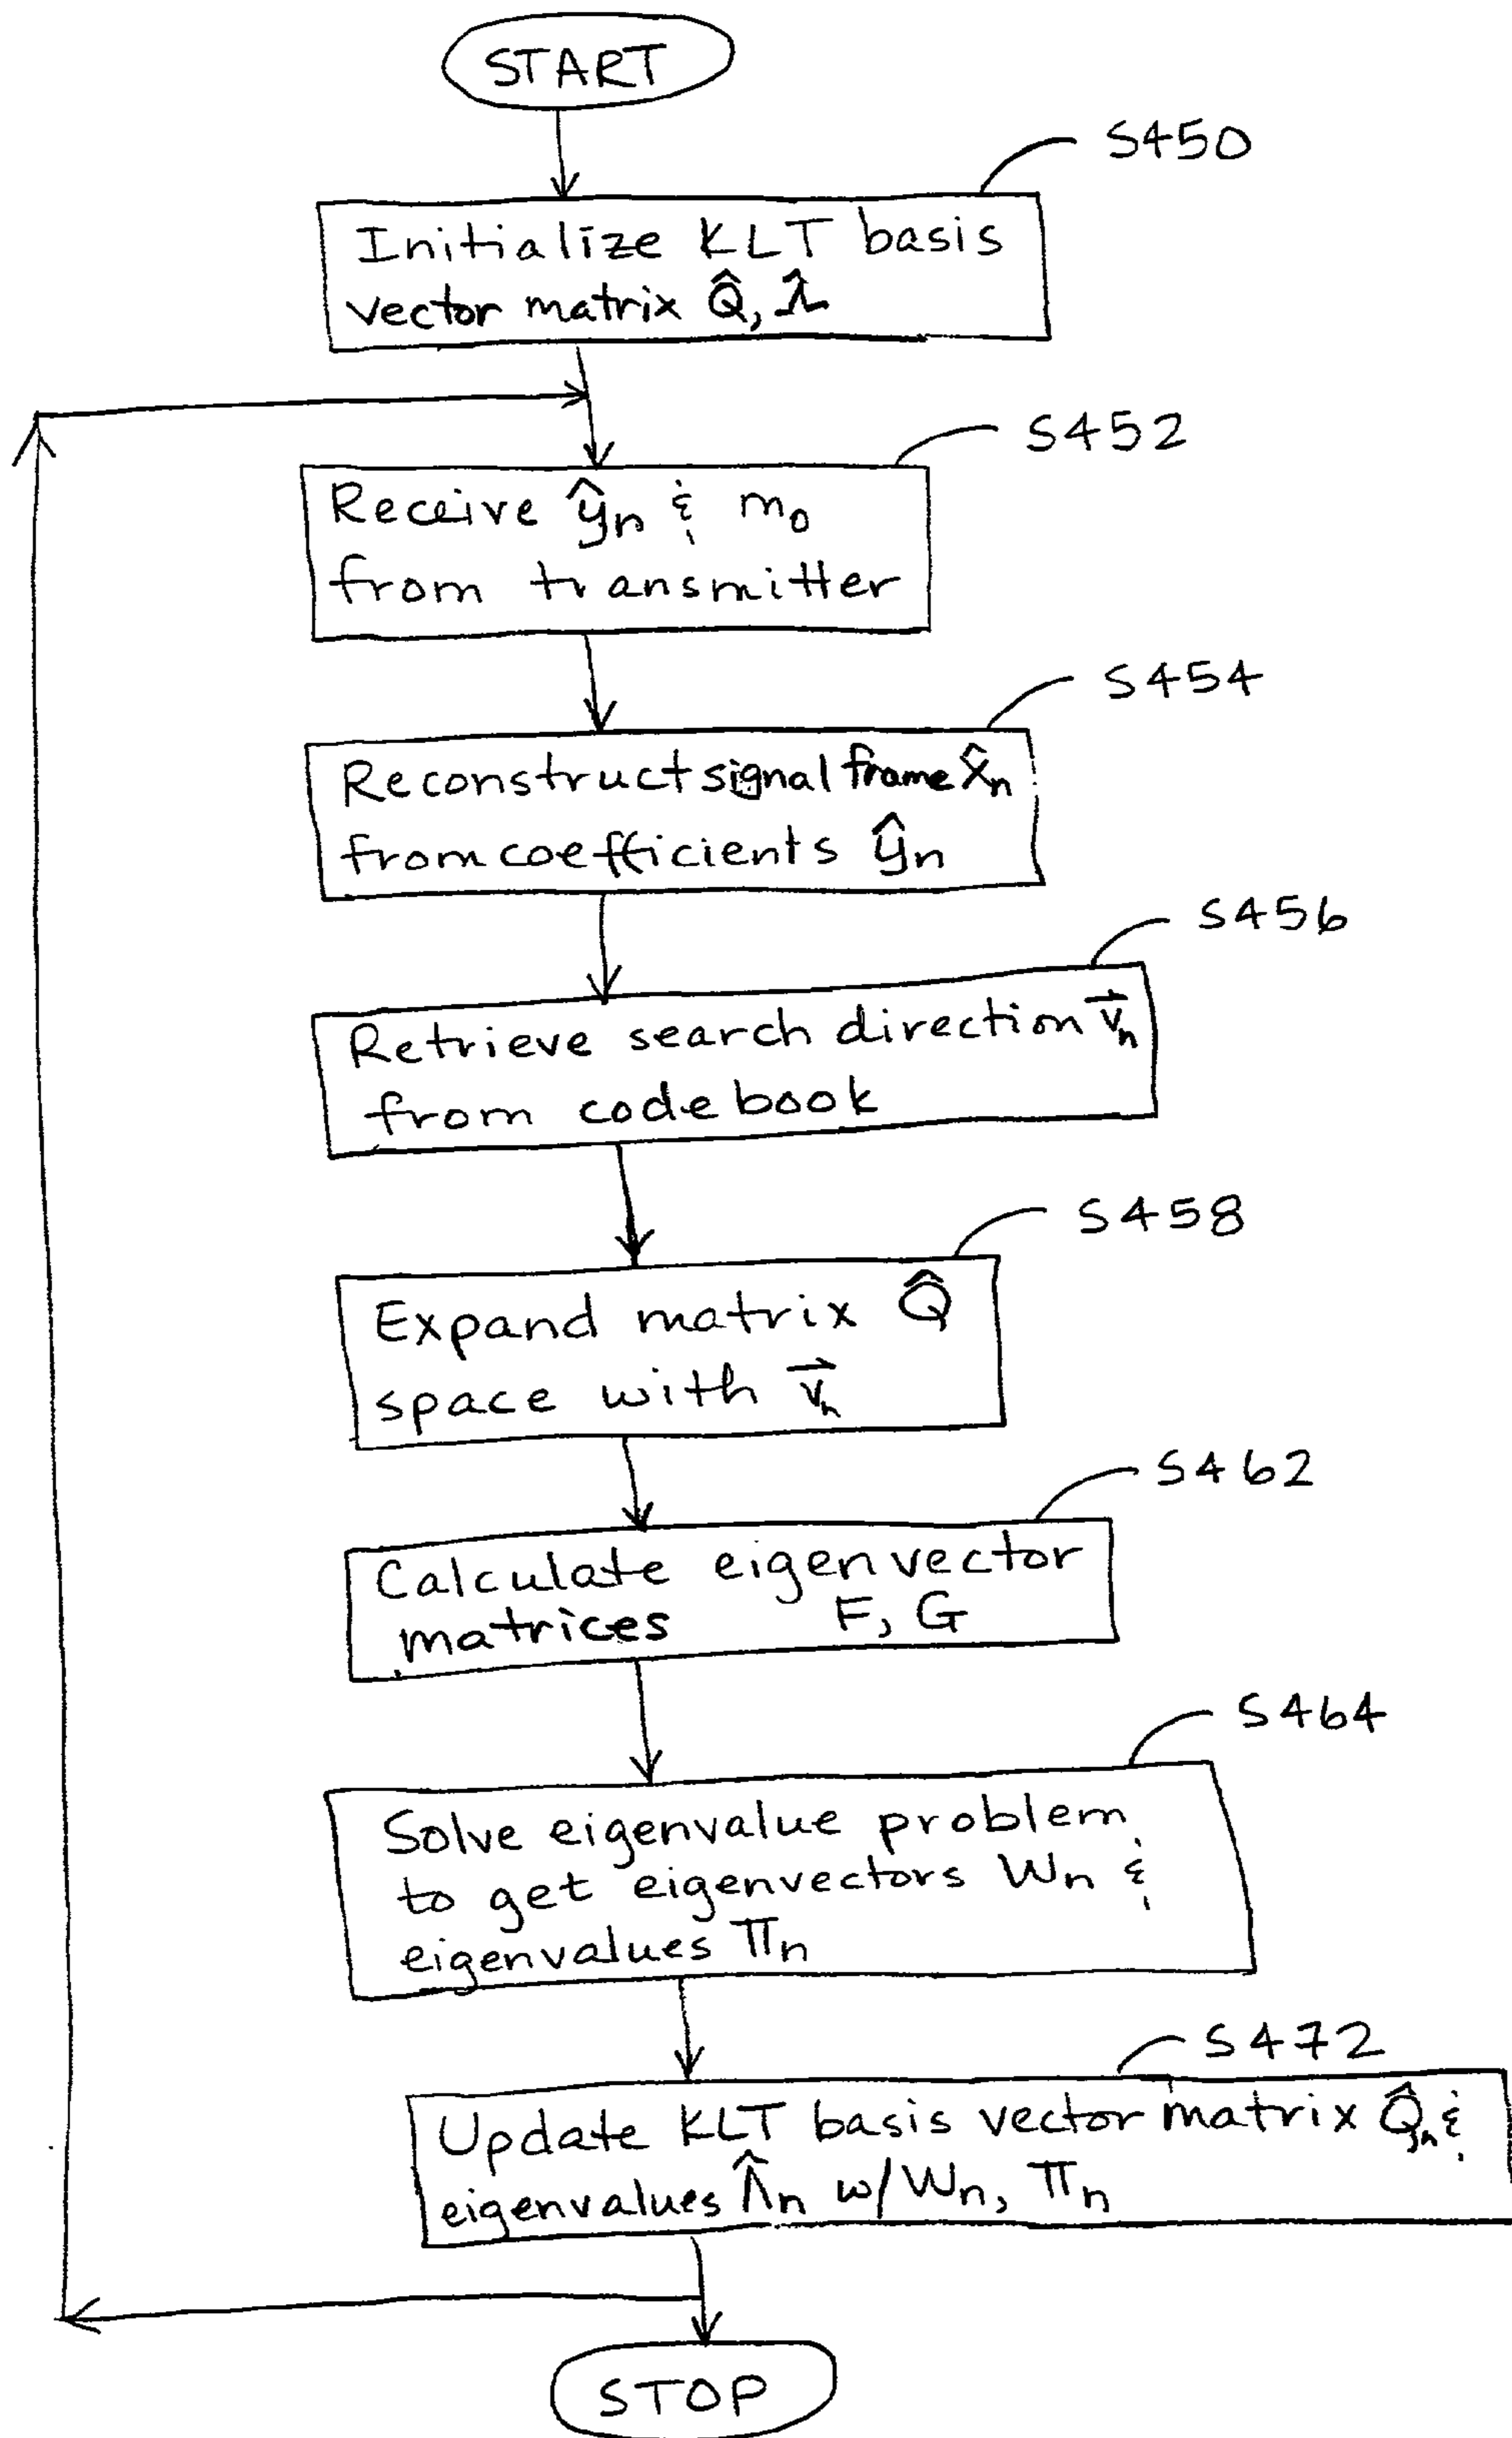 START
S450
Initialize KLT basis
vector matrix Q̂, Λ̂
S452
Receive ŷn & m0
from transmitter
S454
Reconstruct signal frame x̂n
from coefficients ŷn
S456
Retrieve search direction v⃗n
from codebook
S458
Expand matrix Q̂
space with v⃗n
S462
Calculate eigenvector
matrices F, G
S464
Solve eigenvalue problem
to get eigenvectors Wn &
eigenvalues Πn
S472
Update KLT basis vector matrix Q̂n &
eigenvalues Λ̂n w/Wn, Πn
STOP